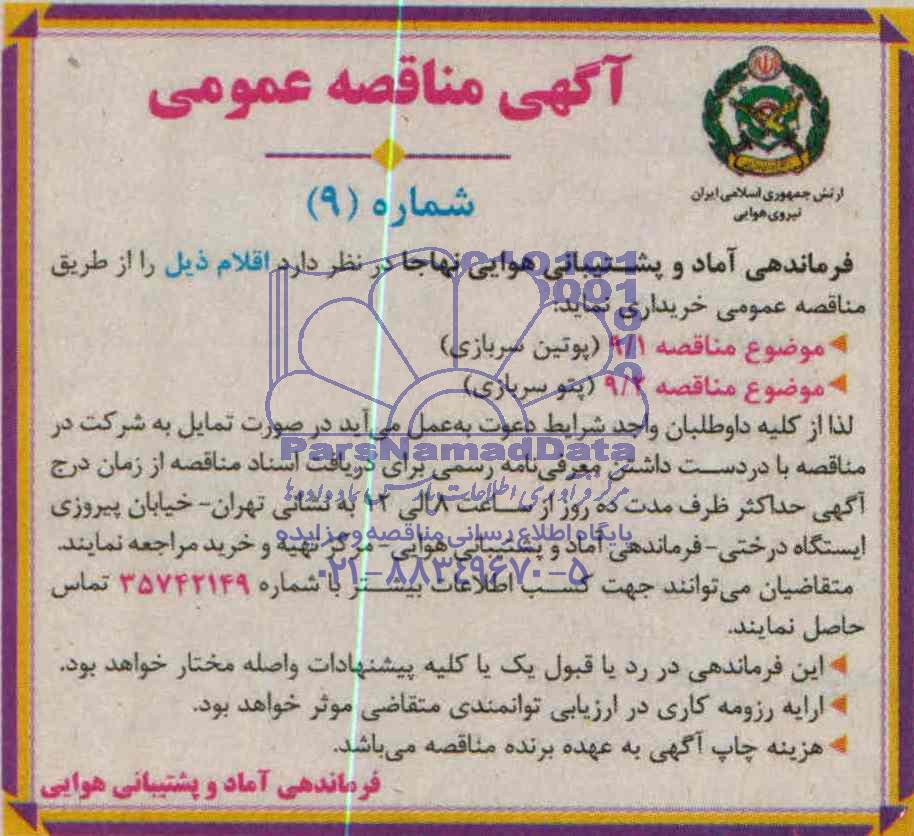 آگهی مناقصه عمومی
ارتش جمهوری اسلامی ایران
نیروی هوایی
شماره (۹)
فرماندهی آماد و پشتیبانی هوایی نهاجا در نظر دارد اقلام ذیل را از طریق
مناقصه عمومی خریداری نماید:
موضوع مناقصه ۹/۱ (پوتین سربازی)
موضوع مناقصه ۹/۲ (پتو سربازی)
لذا از کلیه داوطلبان واجد شرایط دعوت به‌عمل می‌آید در صورت تمایل به شرکت در
مناقصه با دردست داشتن معرفی‌نامه رسمی برای دریافت اسناد مناقصه از زمان درج
آگهی حداکثر ظرف مدت ده روز از ساعت ۸ الی ۱۲ به نشانی تهران- خیابان پیروزی
ایستگاه درختی-فرماندهی آماد و پشتیبانی هوایی- مرکز تهیه و خرید مراجعه نمایند.
متقاضیان می‌توانند جهت کسب اطلاعات بیشتر با شماره ۳۵۷۴۲۱۴۹ تماس
حاصل نمایند.
این فرماندهی در رد یا قبول یک یا کلیه پیشنهادات واصله مختار خواهد بود.
ارایه رزومه کاری در ارزیابی توانمندی متقاضی موثر خواهد بود.
هزینه چاپ آگهی به عهده برنده مناقصه می‌باشد.
فرماندهی آماد و پشتیبانی هوایی
ParsNamadData
پایگاه اطلاع رسانی مناقصه و مزایده
۰۲۱-۸۸۳۴۹۶۷۰-۵